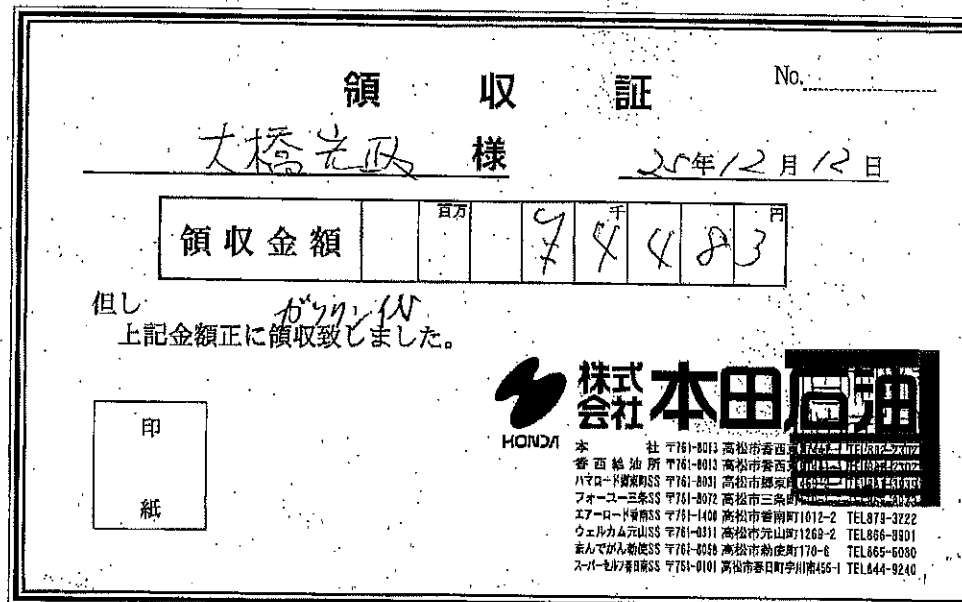 領収証 No.
大橋光政 様 25年12月12日
領収金額 百万 千 円 ¥74483
但し ガソリン代
上記金額正に領収致しました。
印紙
HONDA 株式会社 本田石油
本社 〒761-8013 高松市香西
香西給油所 〒761-8013 高松市香西
〒761-8031 高松市郷東
フォースー三条SS 〒761-8072 高松市三条町
エアーロード香南SS 〒761-1400 高松市香南町1012-2 TEL879-3722
ウェルカム元山SS 〒761-0311 高松市元山町1269-2 TEL866-9901
まんでがん勅使SS 高松市勅使町170-6 TEL865-6080
スーパーセルフ春日南SS 〒761-0101 高松市春日町字川南456-1 TEL844-9240